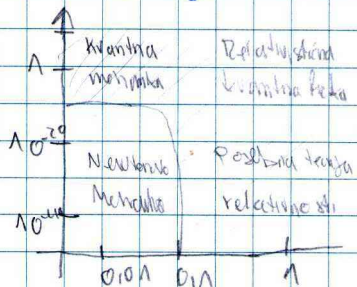 Kvantna
mehanika
Relativistična
kvantna
1
10⁻²⁰
Newtonova
Mehanika
Posebna teorija
relativnosti
0,01
0,1
1